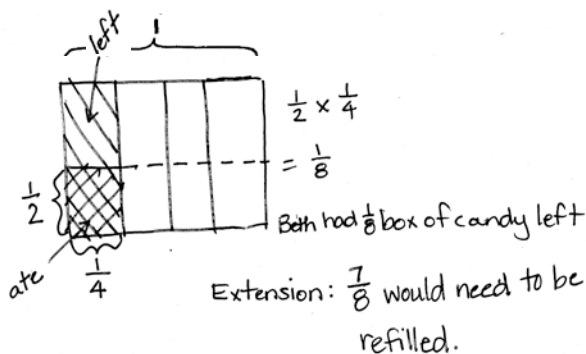 left
1
1/2 × 1/4
= 1/8
1/2
Beth had 1/8 box of candy left
ate
1/4
Extension: 7/8 would need to be
refilled.